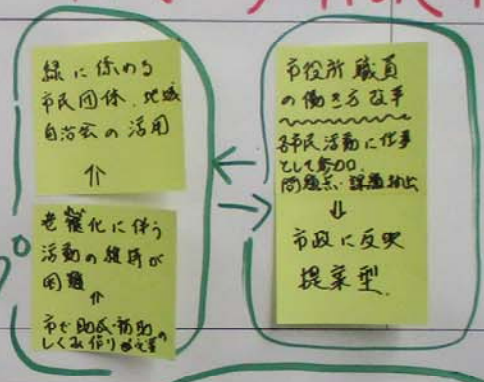 緑に係わる
市民団体、地域
自治会の活用
⇑
老齢化に伴う
活動の維持が
困難
⇑
市で助成・補助
しくみ作りが必要
市役所職員
の働き方改革
各市民活動に仕事
として参加
問題点・課題抽出
⇓
市政に反映
提案型